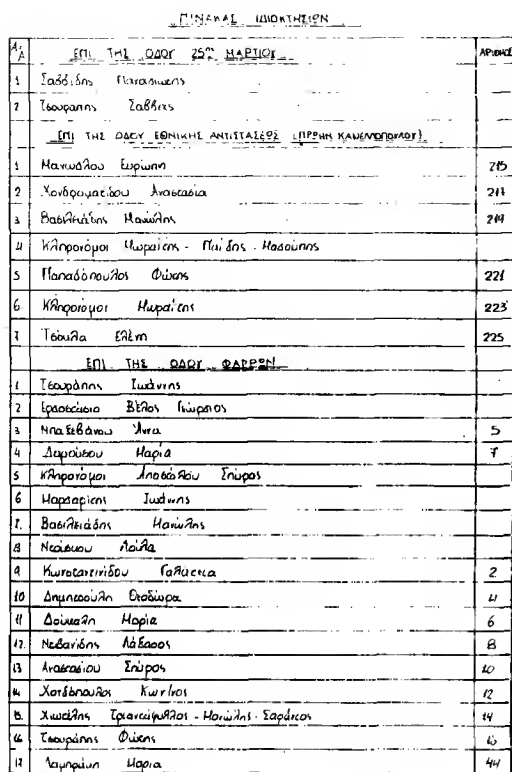 ΠΙΝΑΚΑΣ ΙΔΙΟΚΤΗΣΙΩΝ
Α/Α ΕΠΙ ΤΗΣ ΟΔΟΥ 25ης ΜΑΡΤΙΟΥ ΑΡΙΘΜΟΣ
1 Σαββίδης
2 Τσουράπης Σάββας
ΕΠΙ ΤΗΣ ΟΔΟΥ ΕΘΝΙΚΗΣ ΑΝΤΙΣΤΑΣΕΩΣ (ΠΡΩΗΝ ΚΑΝΕΛΛΟΠΟΥΛΟΥ)
1 Μανωλλου Ευρώπη 215
2 Χονδρωματίδου Αναστασία 217
3 Βασιλειάδης Μανώλης 219
4 Κληρονόμοι Μωραίτης -
5 Παπαδόπουλος Φώτης 221
6 Κληρονόμοι Μωραίτης 223
7 Τσουλα Ελένη 225
ΕΠΙ ΤΗΣ ΟΔΟΥ ΦΑΡΡΩΝ
1 Τσουράπης Ιωάννης
2 Εργοστάσιο Βέλος Γιώργιος
3 Μπαξεβάνου Άννα 5
4 Μαρία 7
5 Κληρονόμοι Αποστόλου Σπύρος
6 Μαργαρίτης Ιωάννης
7. Βασιλειάδης Μανώλης
8 Λούλα
9 Κωνσταντινίδου Γαλάτεια 2
10 Δημητρούλη Θεοδώρα 4
11 Δούκαλη Μαρία 6
12. Λάζαρος 8
13 Αναστασίου Σπύρος 10
14 Κων/νος 12
15. Χιωτέλης Τριαντάφυλλος - Μανώλης - Σαράντος 14
16 Τσουράπης Φώτης 16
17 Λαμπράκη Μαρία 44